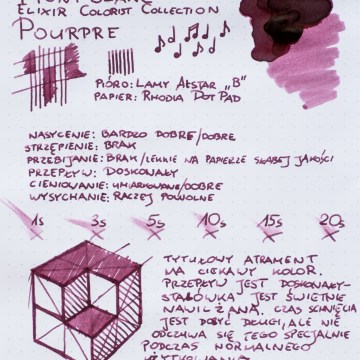 ELIXIR COLORIST COLLECTION
POURPRE
PIÓRO: LAMY ALSTAR „B"
PAPIER: RHODIA DOT PAD
NASYCENIE: BARDZO DOBRE/DOBRE
STRZĘPIENIE: BRAK
PRZEBIJANIE: BRAK/LEKKIE NA PAPIERZE SŁABEJ JAKOŚCI
PRZEPŁYW: DOSKONAŁY
CIENIOWANIE: UMIARKOWANE/DOBRE
WYSYCHANIE: RACZEJ POWOLNE
1s 3s 5s 10s 15s 20s
TYTUŁOWY ATRAMENT
MA CIEKAWY KOLOR.
PRZEPŁYW JEST DOSKONAŁY-
STALÓWKA JEST ŚWIETNIE
NAWILŻANA. CZAS SCHNIĘCIA
JEST DOŚĆ DŁUGI, ALE NIE
ODCZUWA SIĘ TEGO SPECJALNIE
PODCZAS NORMALNEGO